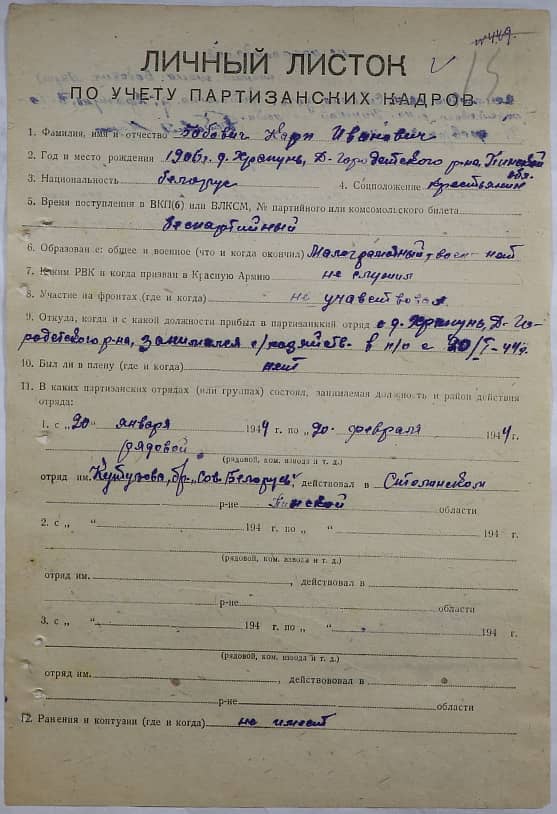 №449.
ЛИЧНЫЙ ЛИСТОК
15
ПО УЧЕТУ ПАРТИЗАНСКИХ КАДРОВ
1. Фамилия, имя и отчество Бабович Карп Иванович
2. Год и место рождения 1906г. д. Храпунь, Д-Городетского р-на, Пинской
обл.
3. Национальность белорус 4. Соцположение крестьянин
5. Время поступления в ВКП(б) или ВЛКСМ, № партийного или комсомольского билета
беспартийный
6. Образование: общее и военное (что и когда окончил) Малограмотный, воен- нет
7. Каким РВК и когда призван в Красную Армию не служил
8. Участие на фронтах (где и когда) не учавствовал
9. Откуда, когда и с какой должности прибыл в партизанский отряд с д. Храпунь, Д-Го-
родетского р-на, занимался с/хозяйств. в п/о с 20/I-44г.
10. Был ли в плену (где и когда) нет
11. В каких партизанских отрядах (или группах) состоял, занимаемая должность и район действия
отряда:
1. с „20“ января 1944 г. по „20“ февраля 1944г.
рядовой
(рядовой, ком. взвода и т. д.)
отряд им. Кутузова, бр. „Сов. Белорусь“, действовал в Столинском
р-не Пинской области
2. с „ “ 194 г. по „ “ 194 г.
(рядовой, ком. взвода и т. д.)
отряд им. , действовал в
р-не области
3. с „ “ 194 г. по „ “ 194 г.
(рядовой, ком. взвода и т. д.)
отряд им. , действововал в
р-не области
12. Ранения и контузии (где и когда) не имеет